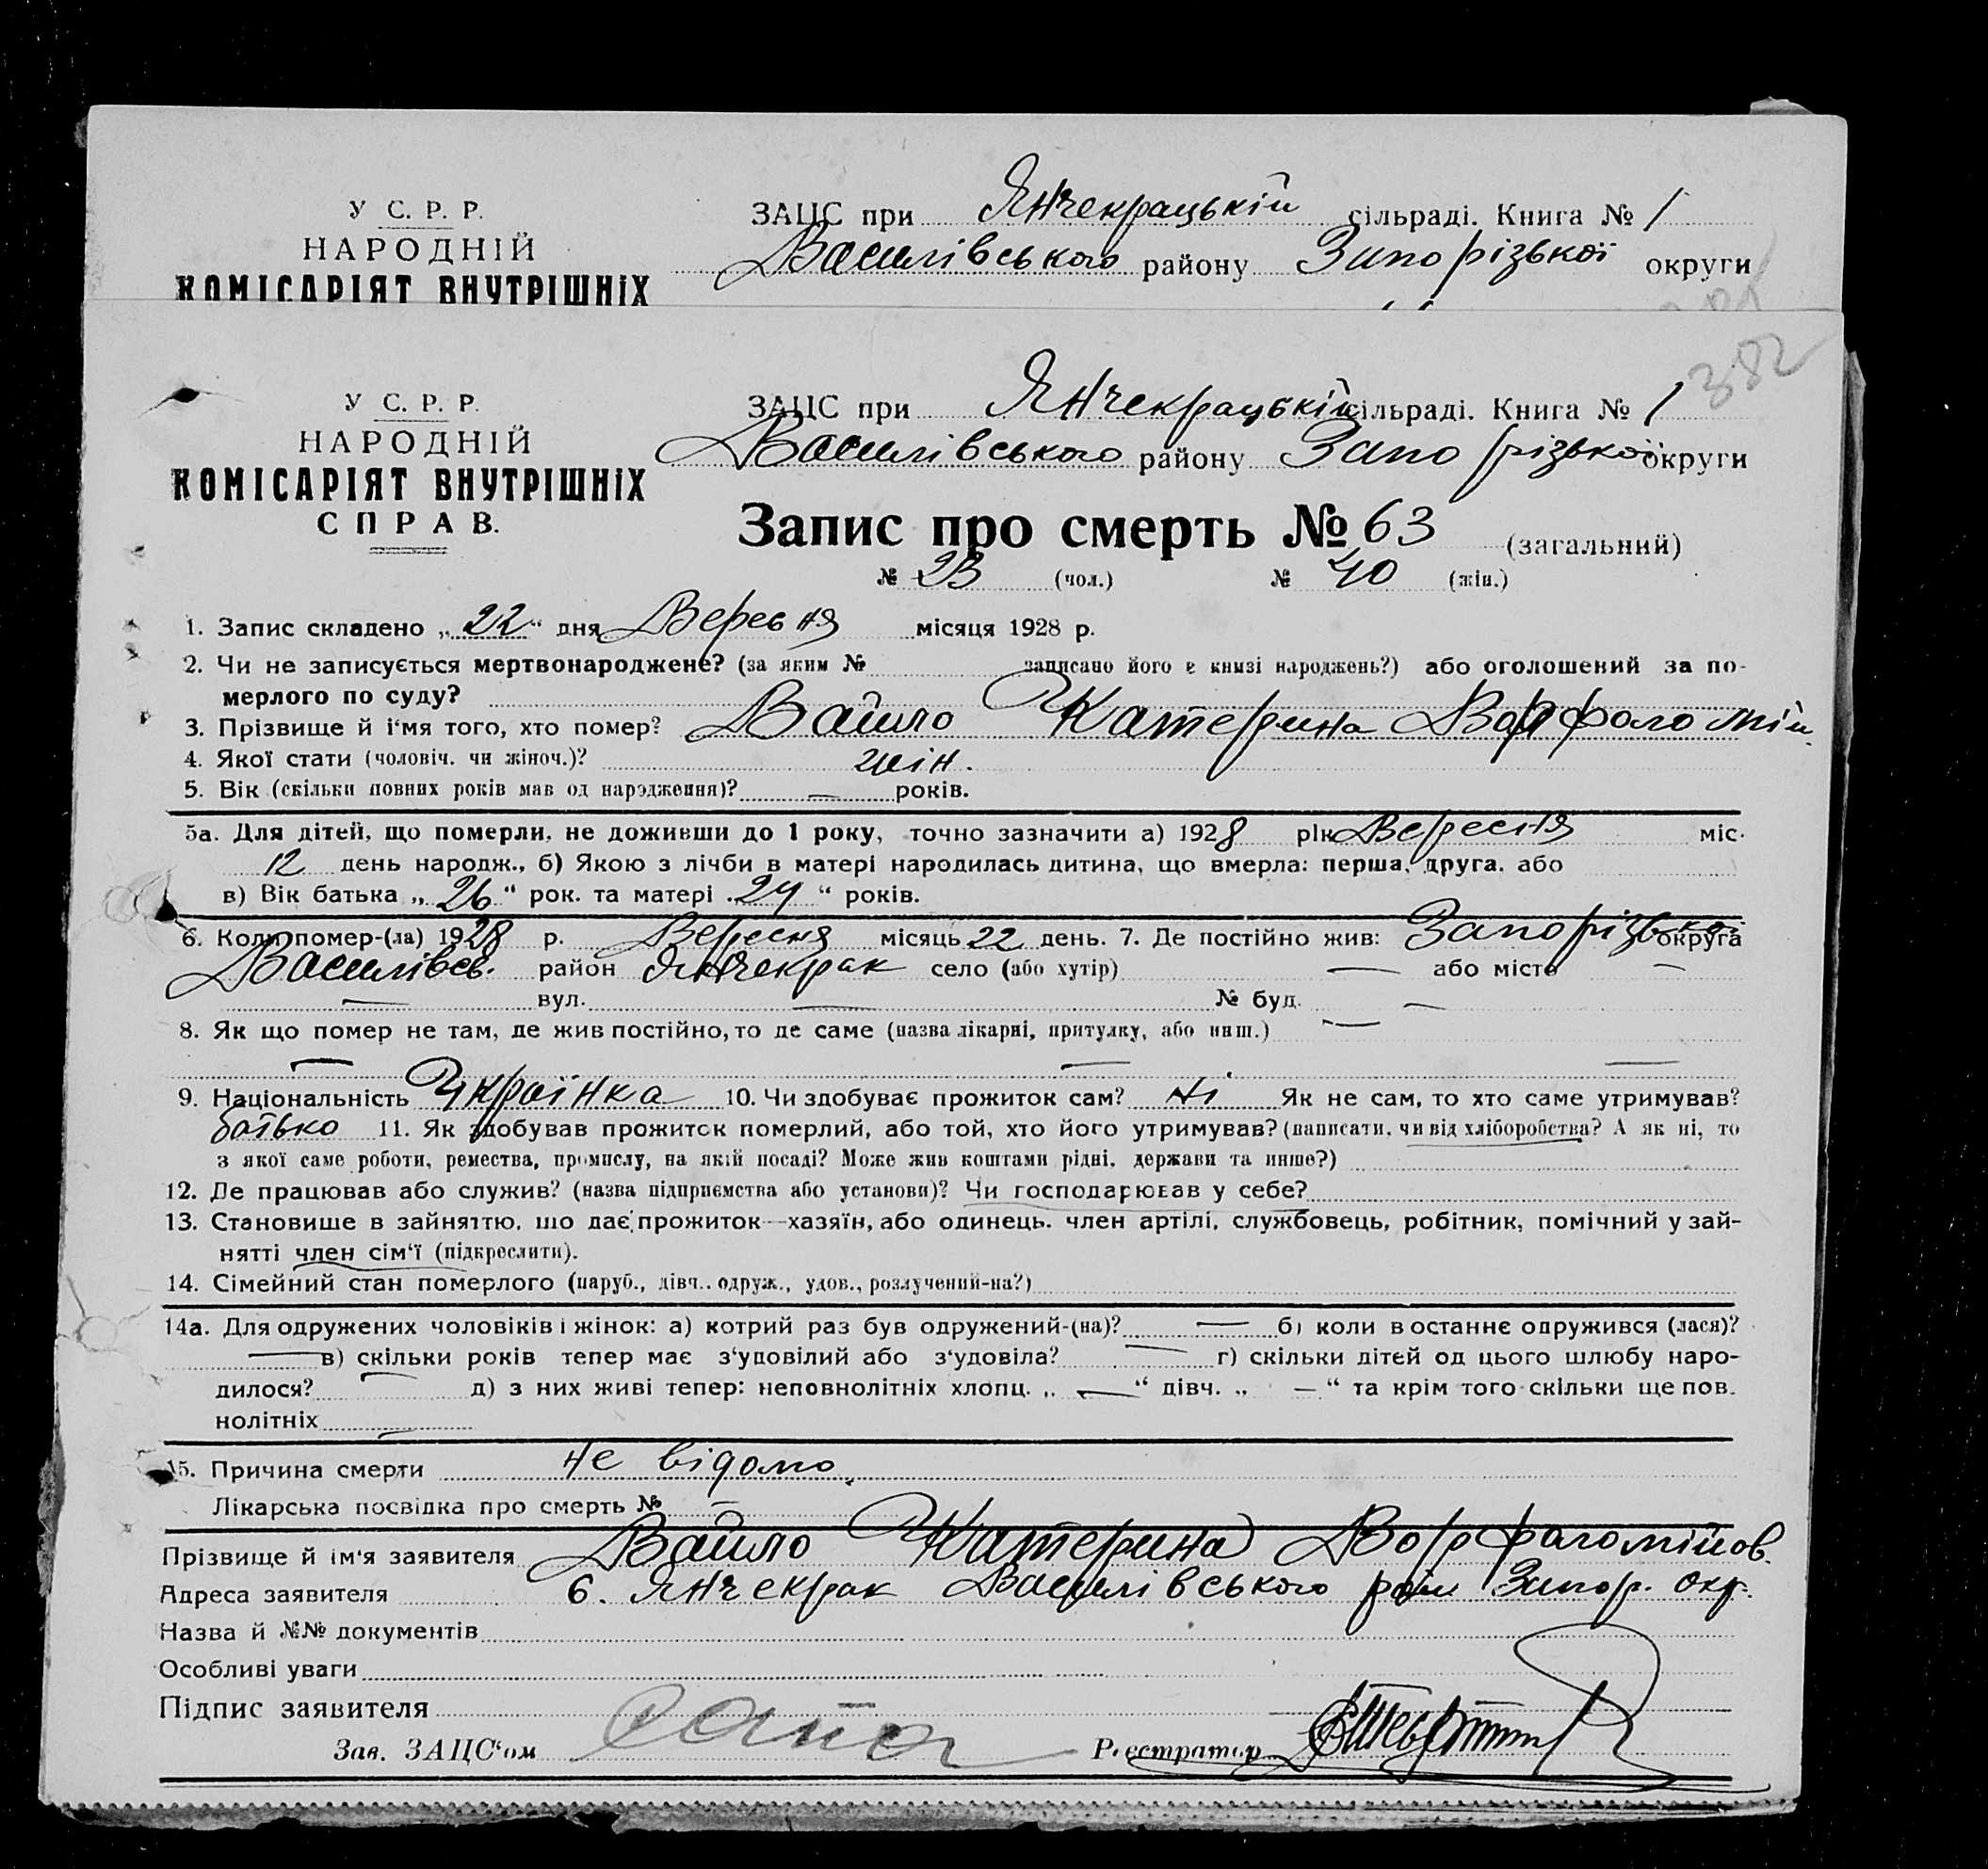 У С. Р. Р.
НАРОДНІЙ
КОМІСАРІЯТ ВНУТРІШНІХ
ЗАЦС при Янчекрацькій сільраді. Книга № 1
Василівського району Запорізької округи
382
У С. Р. Р.
НАРОДНІЙ
КОМІСАРІЯТ ВНУТРІШНІХ
СПРАВ.
ЗАЦС при Янчекрацькій сільраді. Книга № 1
Василівського району Запорізької округи
Запис про смерть № 63 (загальний)
№ 23 (чол.) № 40 (жін.)
1. Запис складено „22“ дня Вересня місяця 1928 р.
2. Чи не записується мертвонароджене? (за яким № записано його в книзі народжень?) або оголошений за по-
мерлого по суду?
3. Прізвище й і‘мя того, хто помер? Вайло Катерина Ворфоломій.
4. Якої стати (чоловіч. чи жіноч.)? жін.
5. Вік (скільки повних років мав од народження)? — років.
5а. Для дітей, що померли, не доживши до 1 року, точно зазначити а) 1928 рік Вересня міс.
12 день народж., б) Якою з лічби в матері народилась дитина, що вмерла: перша, друга. або
в) Вік батька „26“ рок. та матері „24“ років.
6. Коли помер-(ла) 1928 р. Вересня місяць 22 день. 7. Де постійно жив: Запорізької округа
Василівсв. район Янчекрак село (або хутір) — або місто —
— вул. — № буд. —
8. Як що помер не там, де жив постійно, то де саме (назва лікарні, притулку, або инш.) —
— — —
9. Національність Українка 10. Чи здобуває прожиток сам? Ні Як не сам, то хто саме утримував?
батько 11. Як здобував прожиток померлий, або той, хто його утримував? (написати, чи від хліборобства? А як ні, то
з якої саме роботи, ремества, промислу, на якій посаді? Може жив коштами рідні, держави та инше?)
12. Де працював або служив? (назва підприємства або установи)? Чи господарював у себе?
13. Становище в зайняттю, що дає прожиток—хазяїн, або одинець. член артілі, службовець, робітник, помічний у зай-
нятті член сім‘ї (підкреслити).
14. Сімейний стан померлого (паруб., дівч., одруж., удов., розлучений-на?)
14а. Для одружених чоловіків і жінок: а) котрий раз був одружений-(на)? — б) коли востаннє одружився (лася)?
— в) скільки років тепер має з‘удовілий або з‘удовіла? — г) скільки дітей од цього шлюбу наро-
дилося? — д) з них живі тепер: неповнолітніх хлопц. „—“ дівч. „—“ та крім того скільки ще пов.
нолітніх —
15. Причина смерти Не відомо.
Лікарська посвідка про смерть № —
Прізвище й ім‘я заявителя Вайло Катерина Ворфоломійов.
Адреса заявителя с. Янчекрак Василівського рай Запор. окр.
Назва й №№ документів
Особливі уваги
Підпис заявителя
Зав. ЗАЦС‘ом Реєстратор